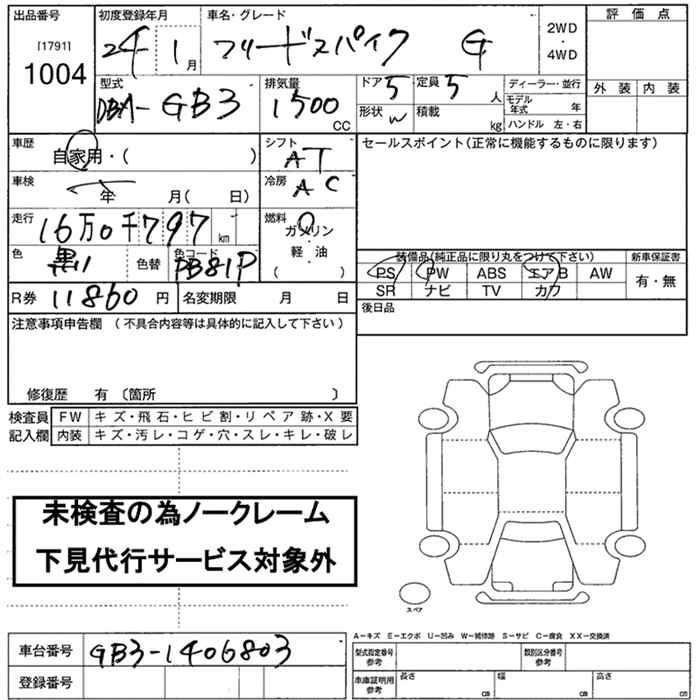 出品番号 初度登録年月 車名・グレード 評価点
[1791] 1004 24年 1月 フリードスパイク G 2WD ・ 4WD
外装 内装
型式 DBA-GB3 排気量 1500 CC ドア 5 定員 5人 ディーラー・並行
形状 W 積載 kg モデル年式 年
ハンドル 左・右
車歴 自家用・( ) シフト AT セールスポイント(正常に機能するものに限ります)
車検 年 月( 日) 冷房 AC
走行 16万0千797km 燃料 ガソリン
軽・油
( )
色 黒 色替 色コード PB81P 装備品(純正品に限り丸をつけて下さい) 新車保証書
PS PW ABS エアB AW 有・無
R券 11860円 名変期限 月 日 SR ナビ TV カワ
後日品
注意事項申告欄 (不具合内容等は具体的に記入して下さい)
修復歴 有 〔箇所 〕
検査員 FW キズ・飛石・ヒビ割・リペア跡・X要
記入欄 内装 キズ・汚レ・コゲ・穴・スレ・キレ・破レ
未検査の為ノークレーム
下見代行サービス対象外
スペア
A-キズ E-エクボ U-凹み W-補修跡 S-サビ C-腐食 XX-交換済
車台番号 GB3-1406803 型式指定番号 参考 類別区分番号 参考
登録番号 車庫証明用 参考 長さ cm 幅 cm 高さ cm